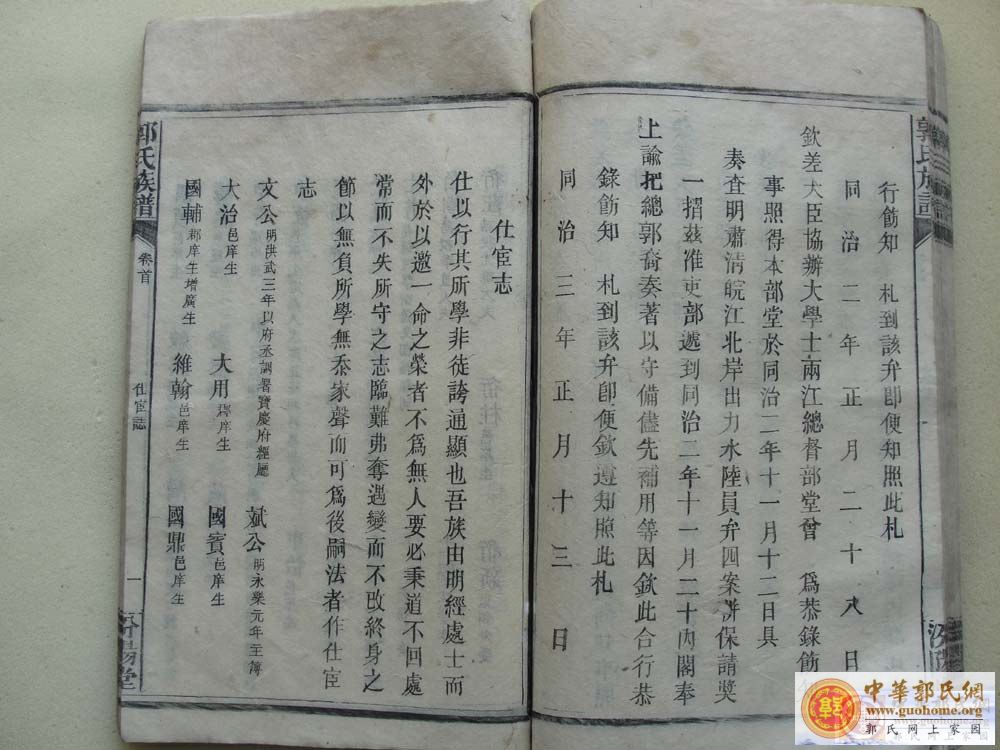 行飭知　札到該弁即便知照此札
同治二年正月二十八日
欽差大臣協辦大學士兩江總督部堂曾　爲恭錄飭知
事照得本部堂於同治二年十一月十二日具
奏查明肅清皖江北岸出力水陸員弁四案併保請奬
一摺茲准吏部遞到同治二年十一月二十內閣奉
上諭把總郭裔奏著以守備儘先補用等因欽此合行恭
錄飭知　札到該弁即便欽遵知照此札
同治三年正月十三日
郭氏族譜
仕宦志
仕以行其所學非徒誇通顯也吾族由明經處士而
外於以邀一命之榮者不爲無人要必秉道不回處
常而不失所守之志臨難弗奪遇變而不改終身之
節以無負所學無忝家聲而可爲後嗣法者作仕宦
志
文公明洪武三年以府丞調署寶慶府經廳　斌公明永樂元年主簿
大治邑庠生　大用郡庠生　國賓邑庠生
國輔郡庠生增廣生　維翰邑庠生　國鼎邑庠生
郭氏族譜　卷首　仕宦誌　一　汾陽堂
中華郭氏網
www.guohome.org
郭氏网上家园